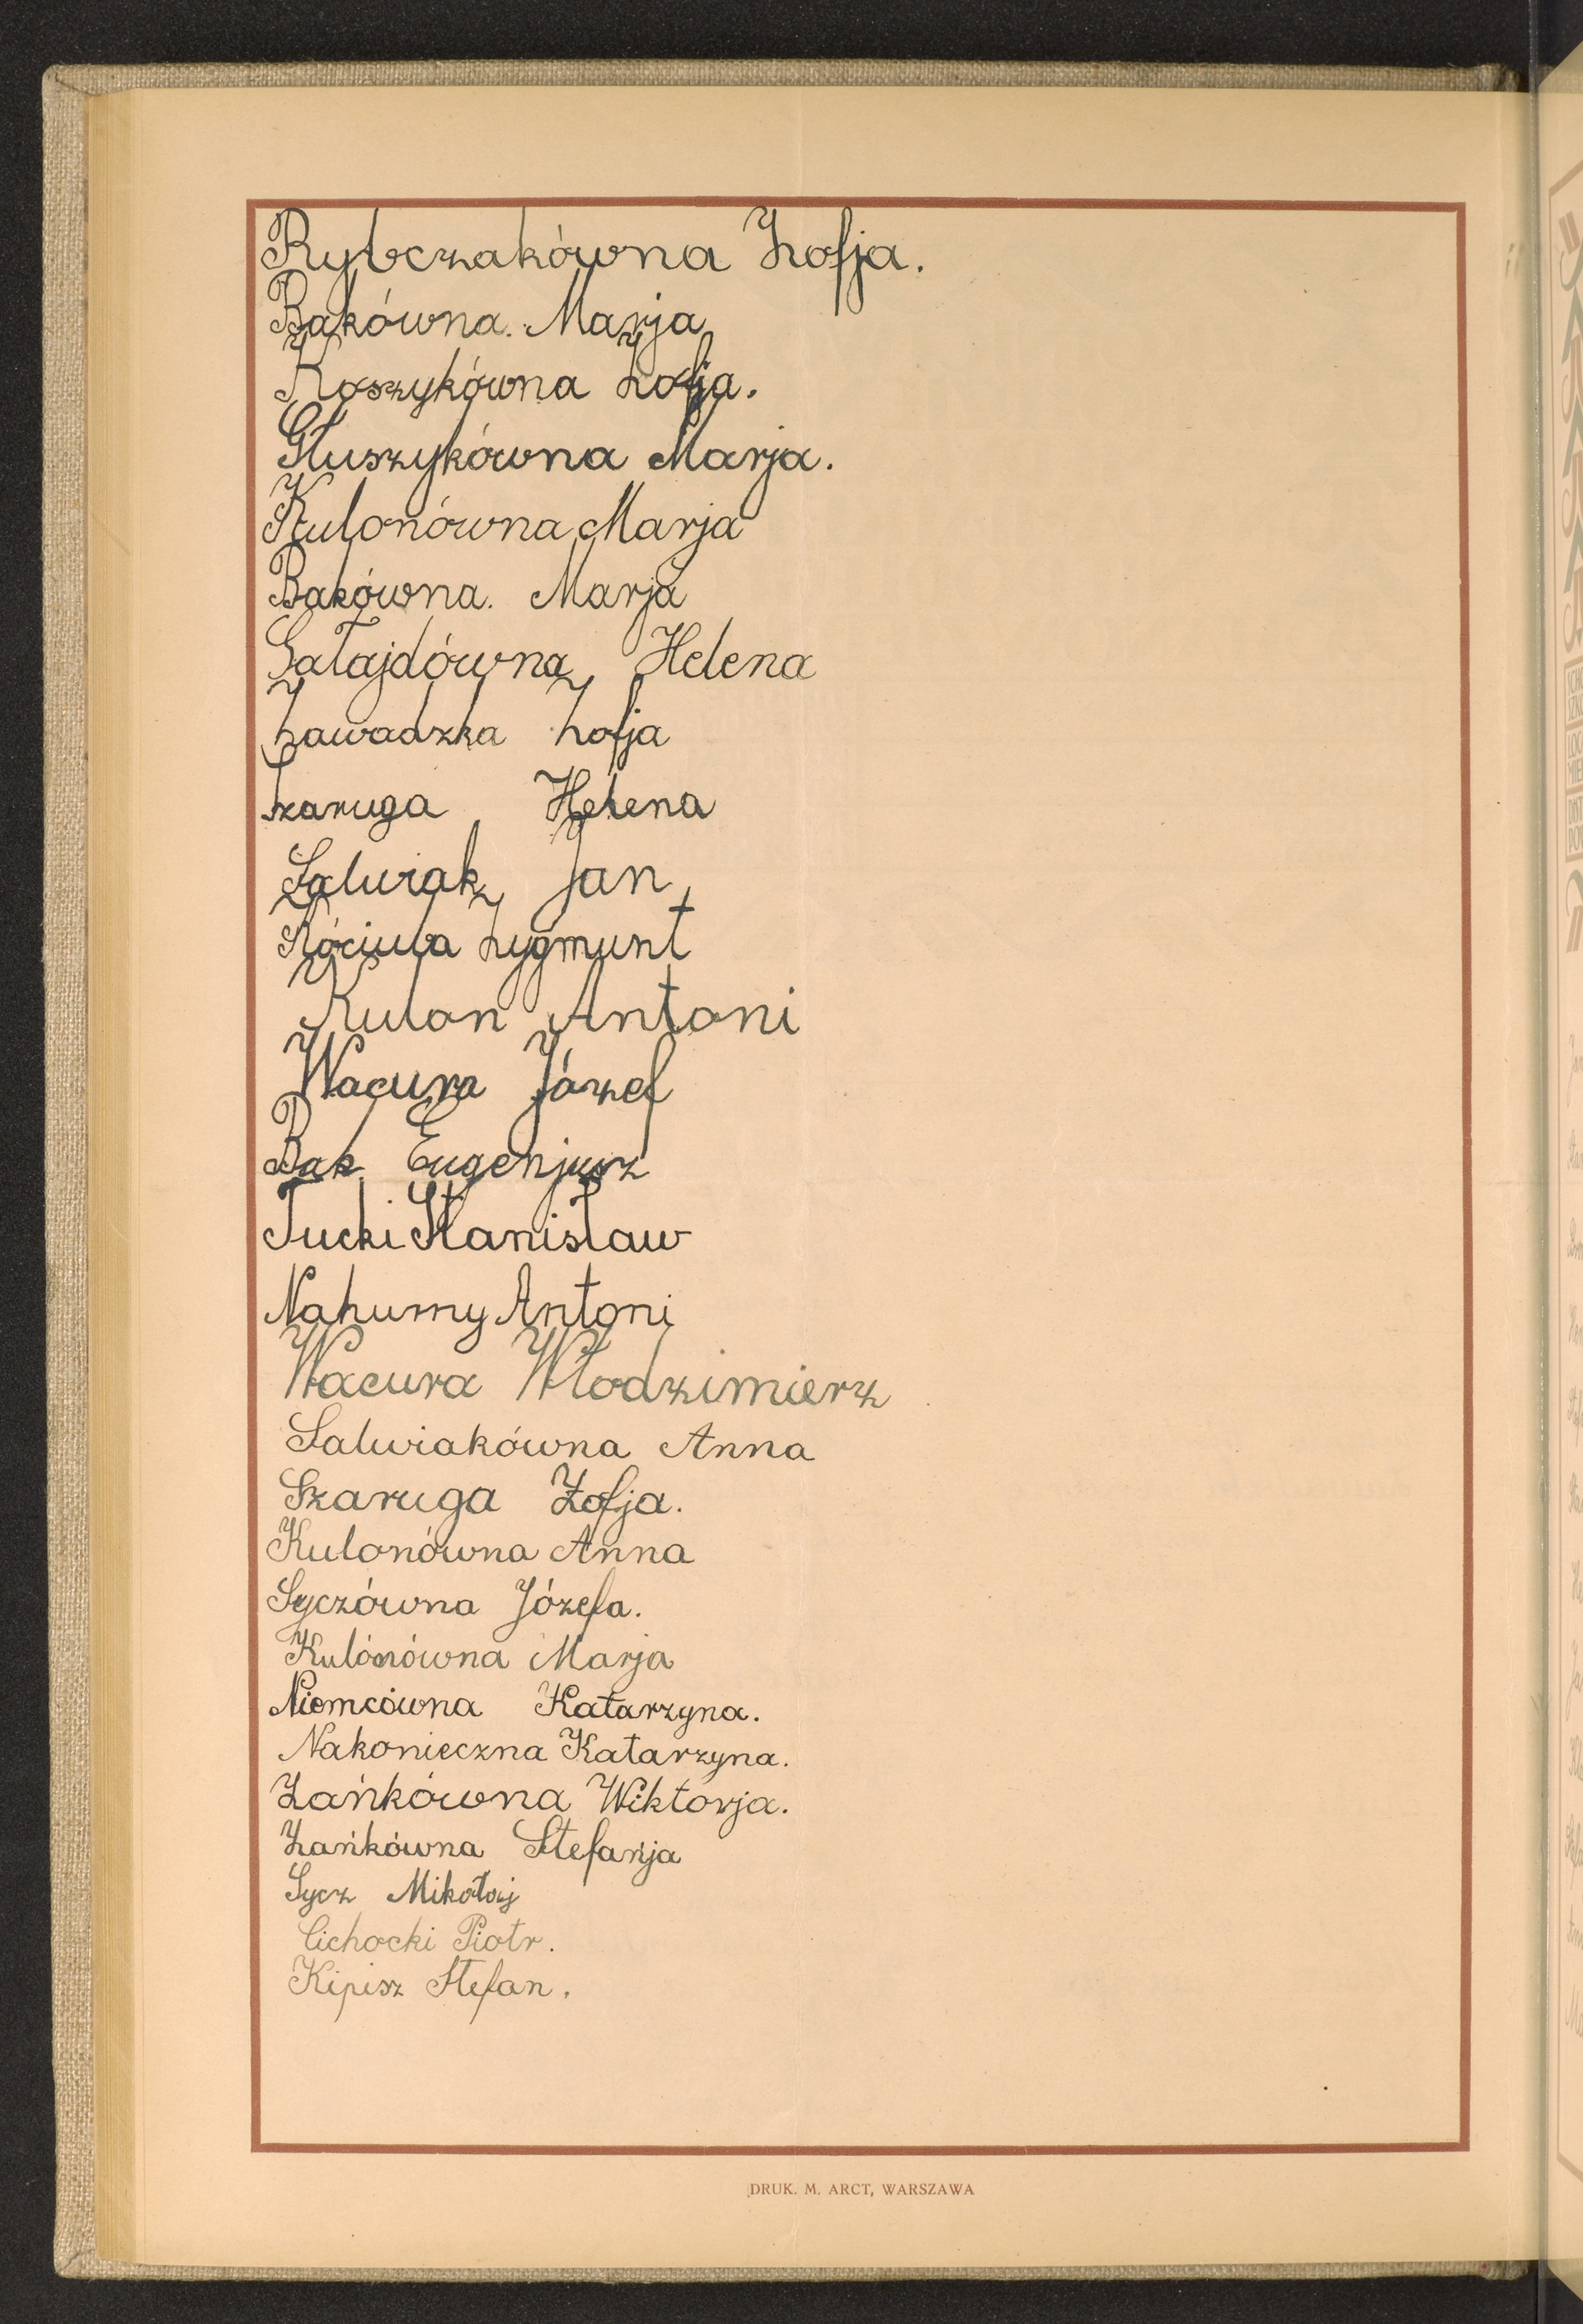 Rybczakówna Zofja.
Bakówna. Marja
Koszykówna Zofja.
Głuszykówna Marja.
Kulonówna Marja
Bakówna. Marja
Gałajdówna Helena
Zawadzka Zofja
Szaruga Helena
Salwiak Jan
Zygmunt
Kulon Antoni
Wacura Józef
Bak Eugenjusz
Tucki Stanisław
Nahumy Antoni
Wacura Włodzimierz
Salwiakówna Anna
Szaruga Zofja.
Kulonówna Anna
Syczówna Józefa.
Kulonówna Marja
Niemcówna Katarzyna.
Nakonieczna Katarzyna.
Zańkówna Wiktorja.
Zańkówna Stefanja
Sycz Mikołaj
Cichocki Piotr.
Kipisz Stefan.
DRUK. M. ARCT, WARSZAWA